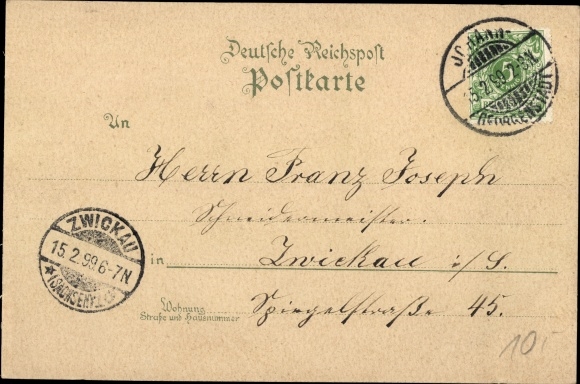 Deutsche Reichspost
Postkarte
JOHANN-
15.2.99.
GEORGENSTADT
An
Herrn Franz Joseph
Schneidermeister.
in Zwickau i/S.
Wohnung
Straße und Hausnummer
Spiegelstraße 45.
ZWICKAU
15.2.99.6-7N
*(SACHSEN)
10,-